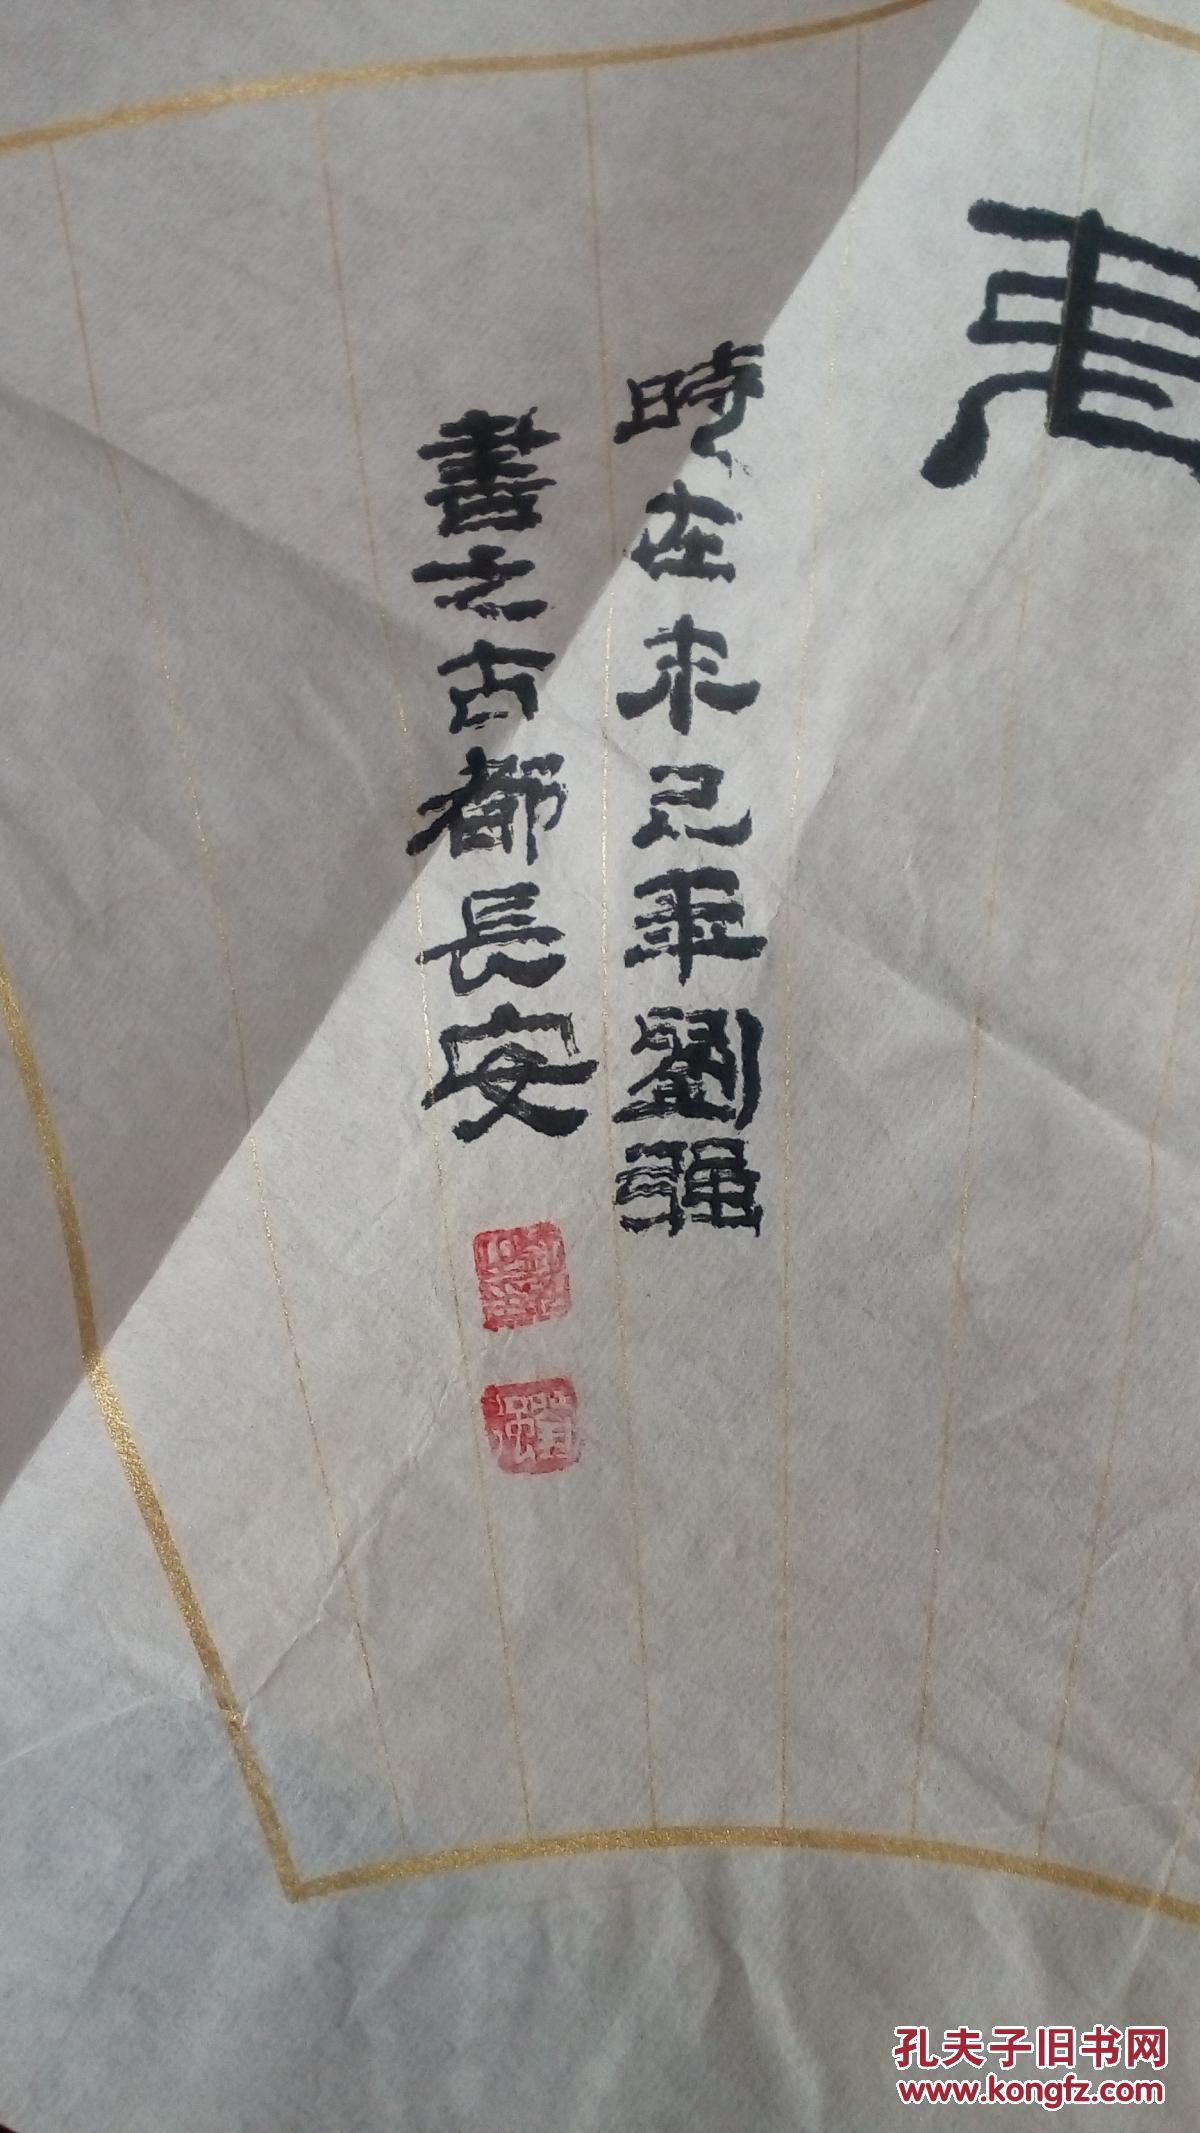 時在未己年劉强
書之古都長安
孔夫子旧书网
www.kongfz.com